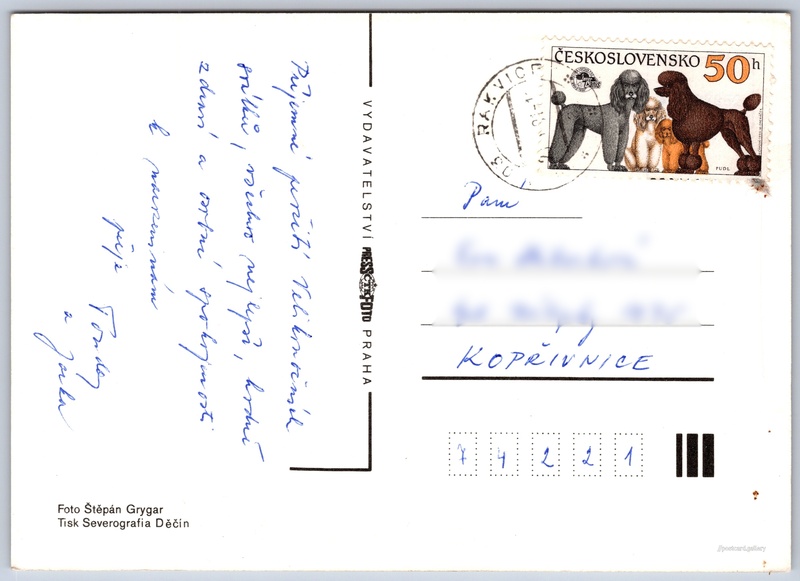 Příjemné prožití Velikonočních
svátků, všechno nejlepší, hodně
zdraví a osobní spokojenosti
k narozeninám
přeje
a Jarka
VYDAVATELSTVÍ PRESSFOTO PRAHA
ČTK
ČESKOSLOVENSKO 50h
PUDL
RAKVICE
Paní
KOPŘIVNICE
74221
Foto Štěpán Grygar
Tisk Severografia Děčín
//postcard.gallery